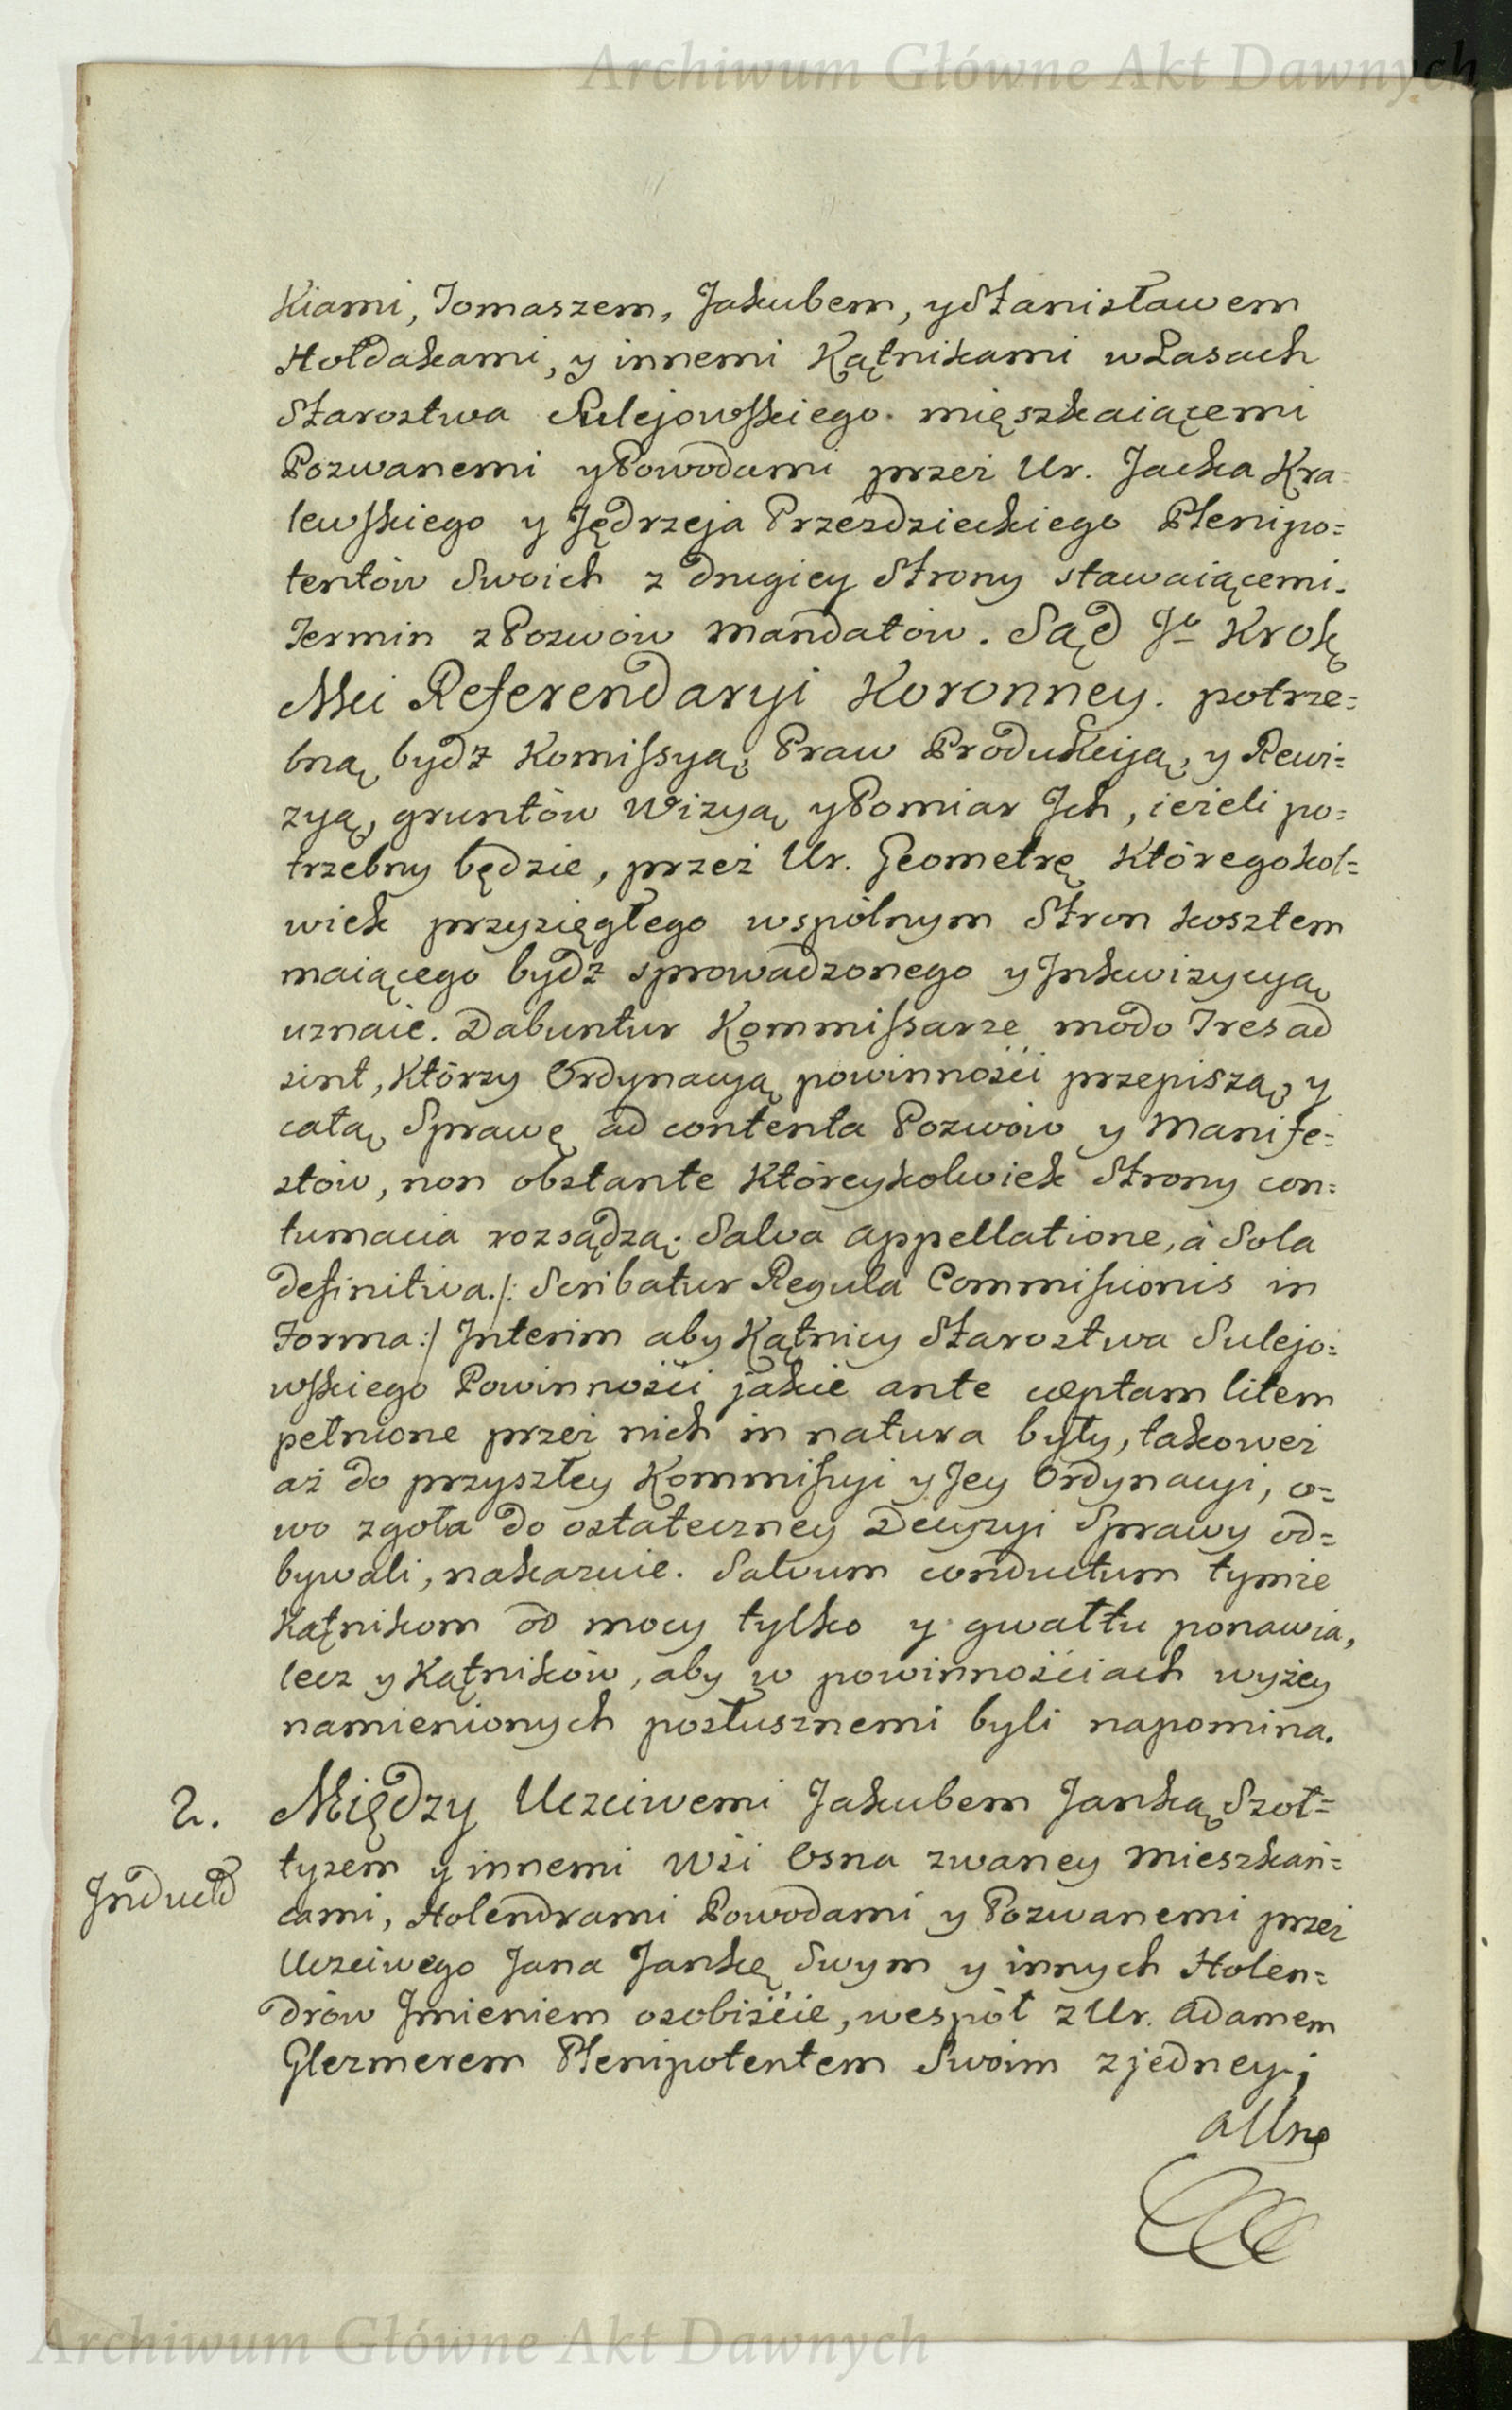 Archiwum Główne Akt Dawnych
kiami, Tomaszem, Jakubem, y Stanisławem
Hołdakami, y innemi Kątnikami w Lasach
Starostwa Sulejowskiego. mięszkaiącemi
Pozwanemi y Powodami przez Ur. Jacka Kra-
lewskiego y Jędrzeja Przezdzieckiego Plenipo=
tentów Swoich z drugiey Strony stawaiącemi.
Termin z Pozwów Mandatów. Sąd Jo Krolę
Mci Referendaryi Koronney. potrze=
bną bydz Komissyą, Praw Produkcyą, y Rewi=
zyą, gruntów Wizyą y Pomiar Jch, ieżeli po=
trzebny będzie, przez Ur. Geometrę któregokol=
wiek przysięgłego wspólnym Stron kosztem
maiącego bydz sprowadzonego y Jnkwizycyą
uznaie. Dabuntur Kommissarze modo Tres ad
sint, którzy Ordynacyą powinności przepiszą, y
całą Sprawę ad contenta Pozwów y Manife=
stów, non obstante któreykolwiek Strony con=
tumacia rozsądzą. Salva appellatione, à Sola
definitiva./: Scribatur Regula Commissionis in
Forma:/ Interim aby Kątnicy Starostwa Sulejo=
wskiego Powinności jakie ante cæptam litem
pełnione przez nich in natura były, takoweż
aż do przyszłey Kommissyi y Jey Ordynacyi, o=
wo zgoła do ostateczney Decyzyi Sprawy od=
bywali, nakazuie. Salvum conductum tymże
Kątnikom od mocy tylko y gwałtu ponawia,
lecz y Kątników, aby w powinnościach wyżey
namienionych posłusznemi byli napomina.
2. Między Uczciwemi Jakubem Janką Szoł=
tysem y innemi Wsi Osna zwaney Mieszkań=
Inducta
cami, Holendrami Powodami y Pozwanemi przez
Uczciwego Jana Jankę Swym y innych Holen=
drów Jmieniem osobiście, wespół z Ur. Adamem
Glezmerem Plenipotentem Swoim z jedney;
Archiwum Główne Akt Dawnych